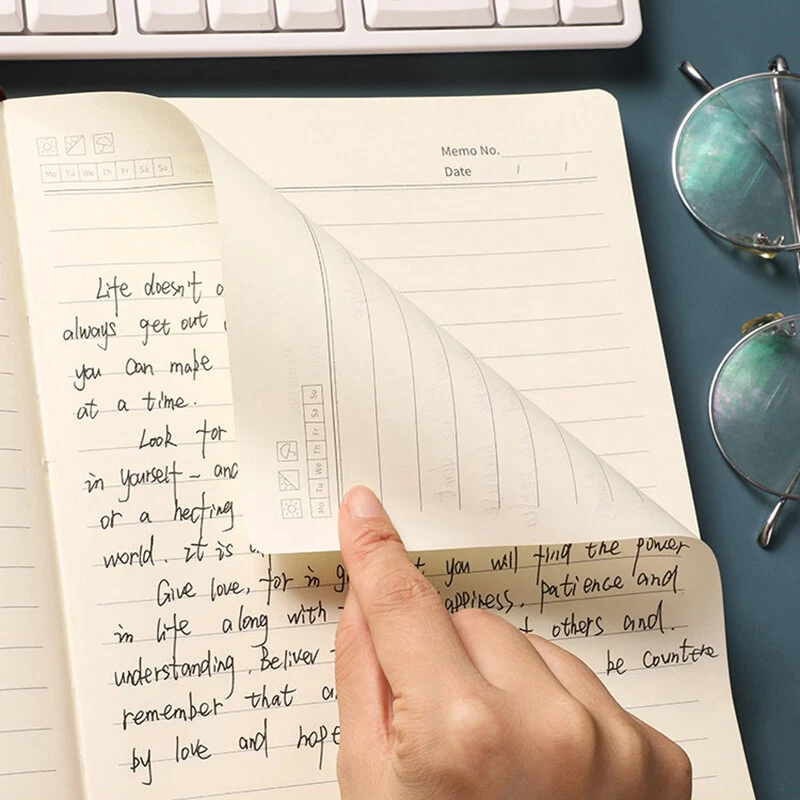 Mo Tu We Th Fr Sa Su
Memo No.
Date / /
Life doesn't
always get out
you can make
at a time.
Look for
in yourself - and
or a hecting
world. it is
Give love, for in you will find the power
in life along with appiness. patience and
understanding. Beliver others and.
remember that be counter
by love and hope
Mo Tu We Th Fr Sa Su